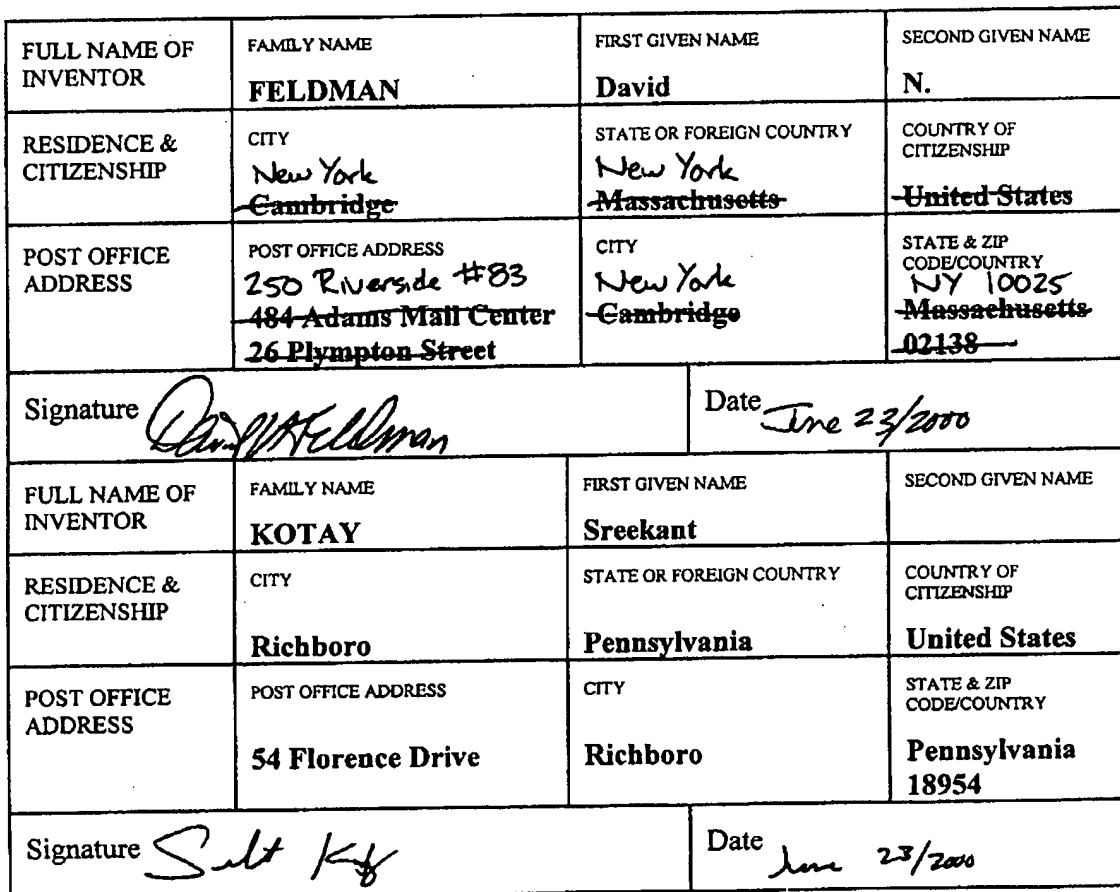 FULL NAME OF INVENTOR
FAMILY NAME
FELDMAN
FIRST GIVEN NAME
David
SECOND GIVEN NAME
N.
RESIDENCE & CITIZENSHIP
CITY
New York
Cambridge
STATE OR FOREIGN COUNTRY
New York
Massachusetts
COUNTRY OF CITIZENSHIP
United States
POST OFFICE ADDRESS
POST OFFICE ADDRESS
250 Riverside #83
484 Adams Mail Center
26 Plympton Street
CITY
New York
Cambridge
STATE & ZIP CODE/COUNTRY
NY 10025
Massachusetts
02138
Signature
Date June 23/2000
FULL NAME OF INVENTOR
FAMILY NAME
KOTAY
FIRST GIVEN NAME
Sreekant
SECOND GIVEN NAME
RESIDENCE & CITIZENSHIP
CITY
Richboro
STATE OR FOREIGN COUNTRY
Pennsylvania
COUNTRY OF CITIZENSHIP
United States
POST OFFICE ADDRESS
POST OFFICE ADDRESS
54 Florence Drive
CITY
Richboro
STATE & ZIP CODE/COUNTRY
Pennsylvania
18954
Signature
Date June 23/2000